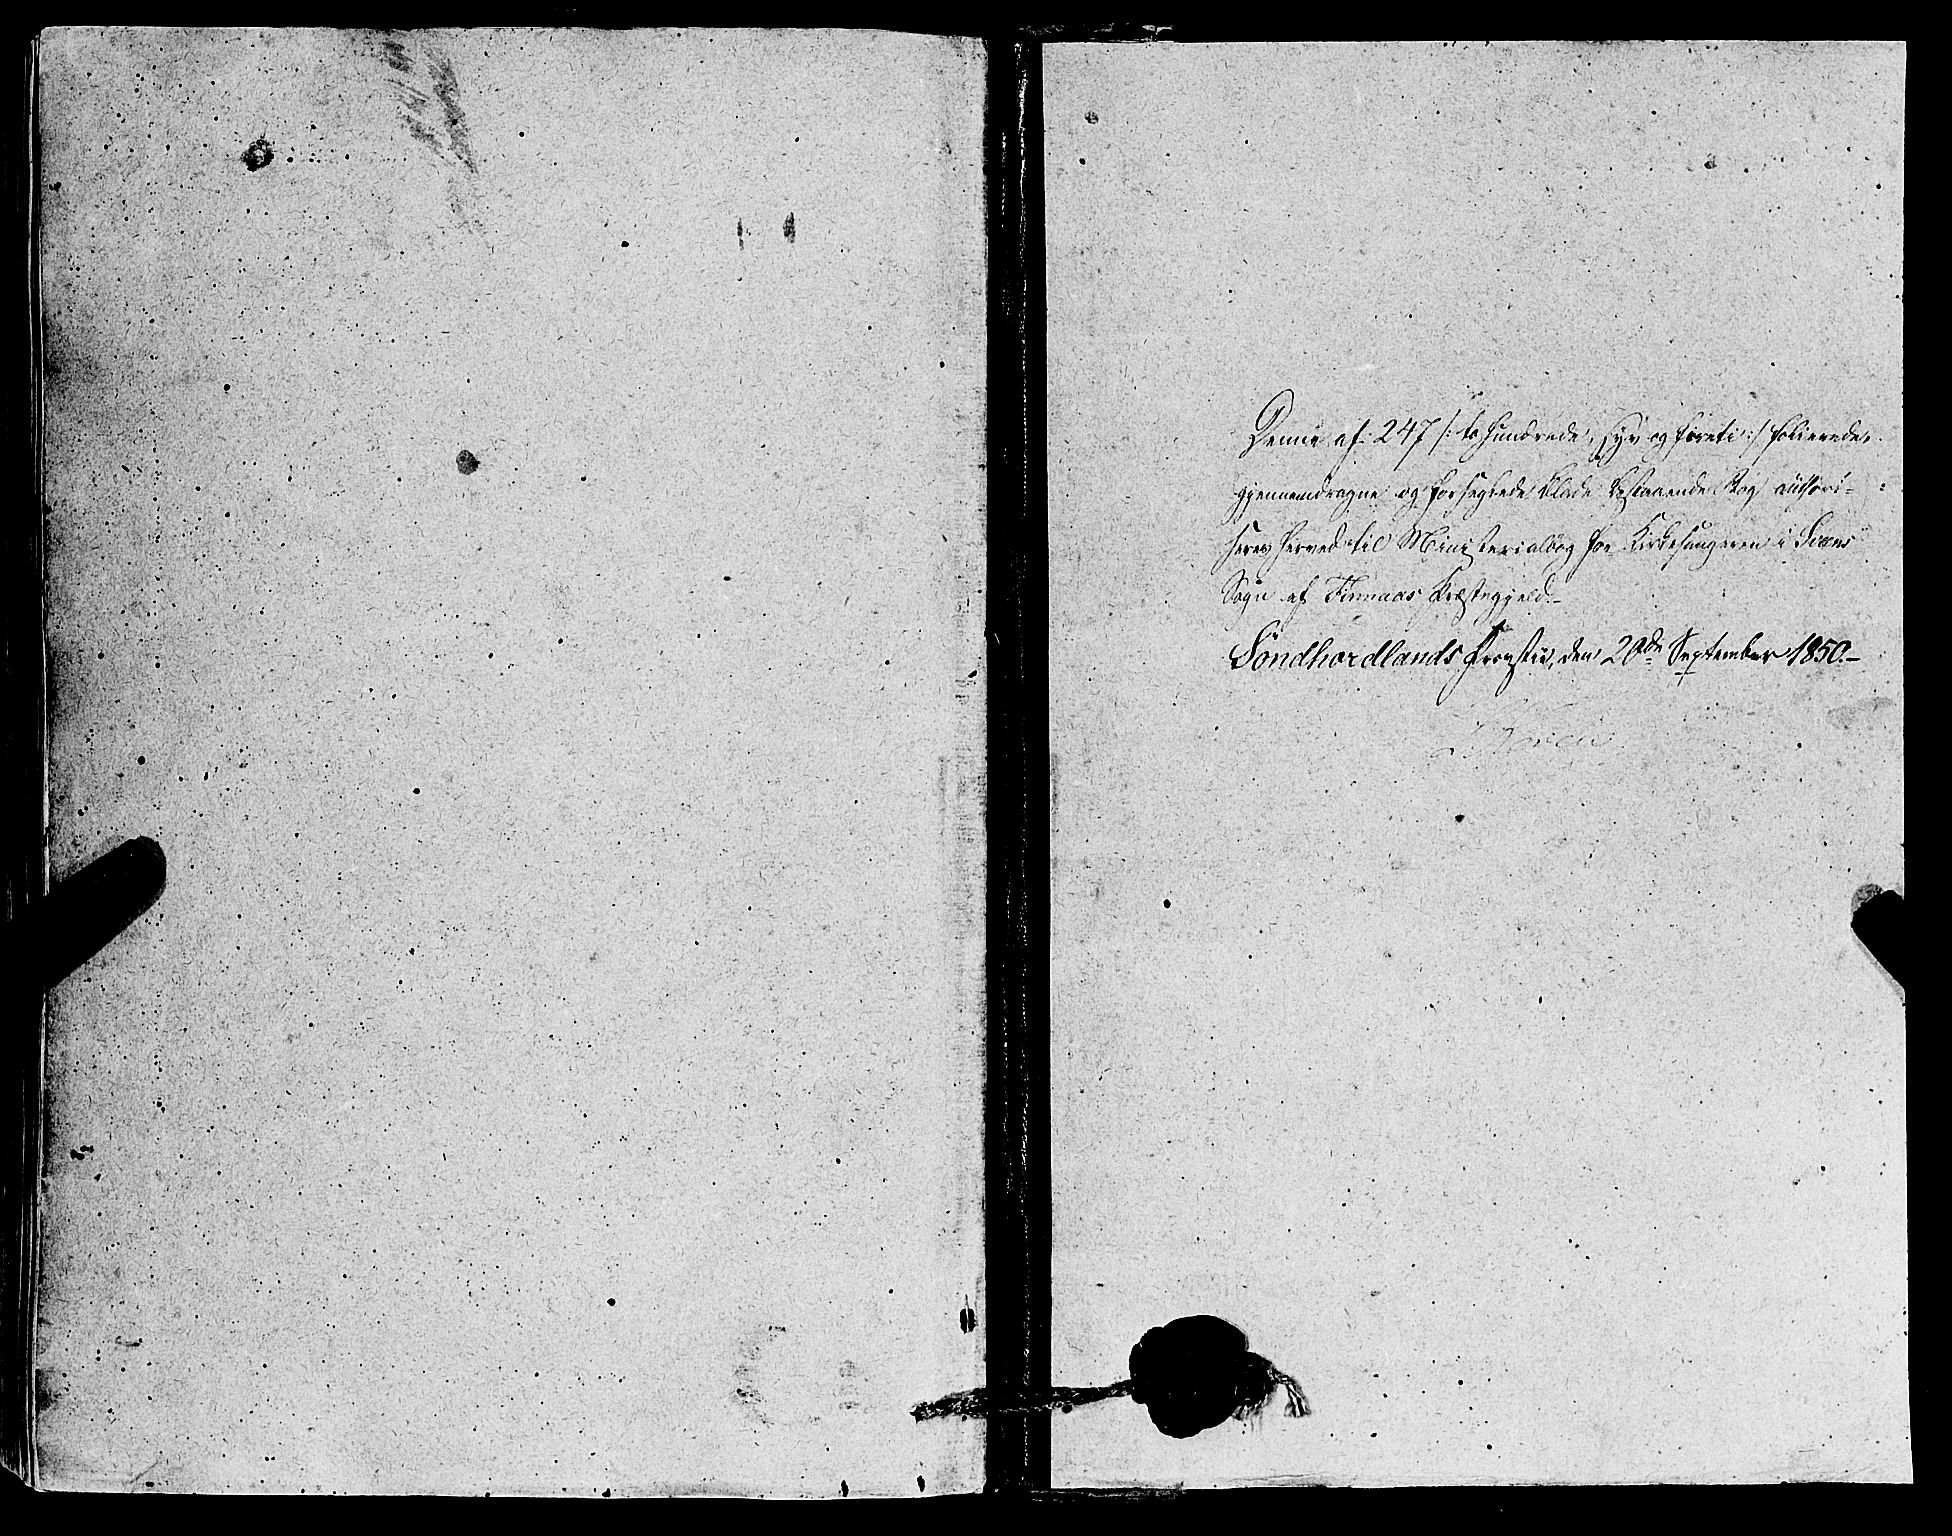 Denne af 247 /: to hundrede, syv og fireti :/ folierede,
gjennemdragne og forseglede Blade bestaaende Bog authori-
seres herved til Ministerialbog for Kirkesangeren i
Sogn af Finnaas Præstegjeld.-
Söndhordlands Provstie, den 20de September 1850.-